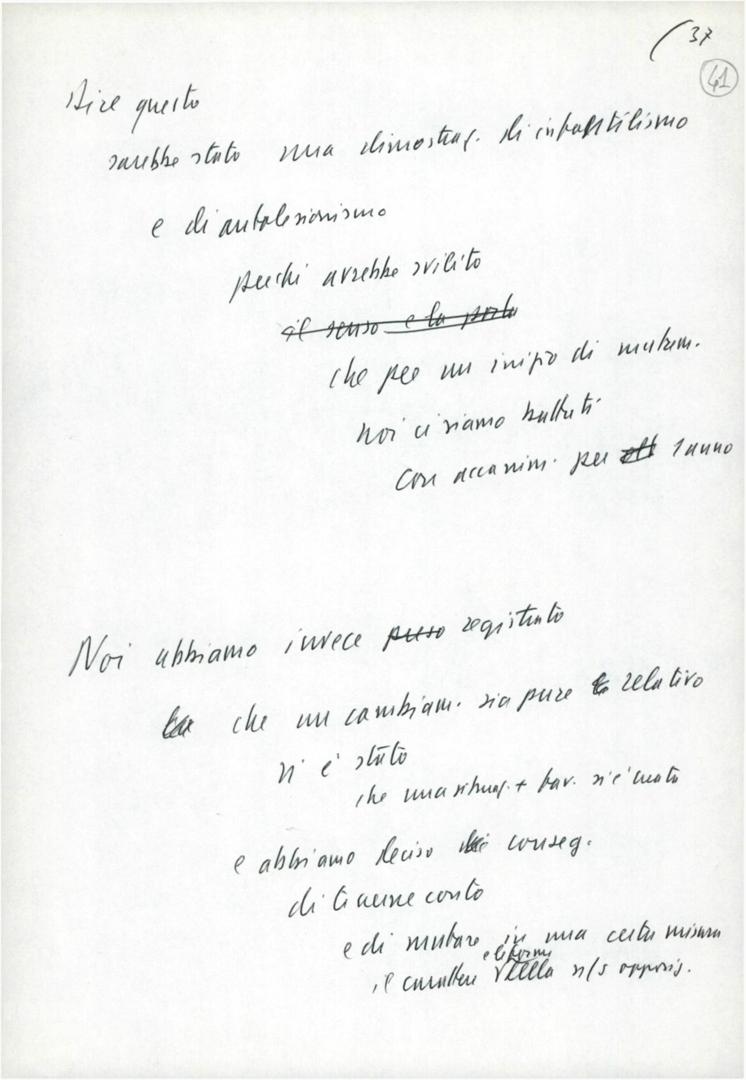 37
41
Dire questo
sarebbe stato una dimostraz. di infantilismo
e di autolesionismo
perché avrebbe svilito
il senso e la porta
che per un inizio di mutam.
noi ci siamo battuti
con accanim. per 1 anno
Noi abbiamo invece preso registrato
che un cambiam. sia pure relativo
vi è stato
che una situaz. + fav. si è creata
e abbiamo deciso conseg.
di tenerne conto
e di mutare in una certa misura
e le forme
il carattere della n/s opposiz.